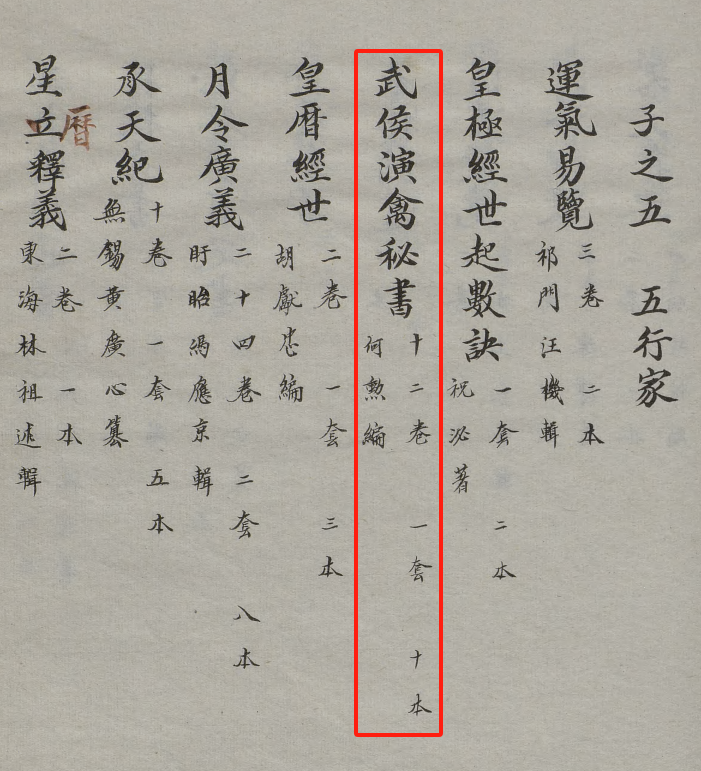 子之五 五行家
運氣易覽 三卷 二本
祁門汪機輯
皇極經世起數訣 一套 二本
祝泌著
武侯演禽秘書 十二卷 一套 十本
何勲編
皇曆經世 二卷 一套 三本
胡獻忠編
月令廣義 二十四卷 二套 八本
盱眙馮應京輯
承天紀 十卷 一套 五本
無錫黃廣心纂
星立釋義 二卷 一本
曆
東海林祖述輯